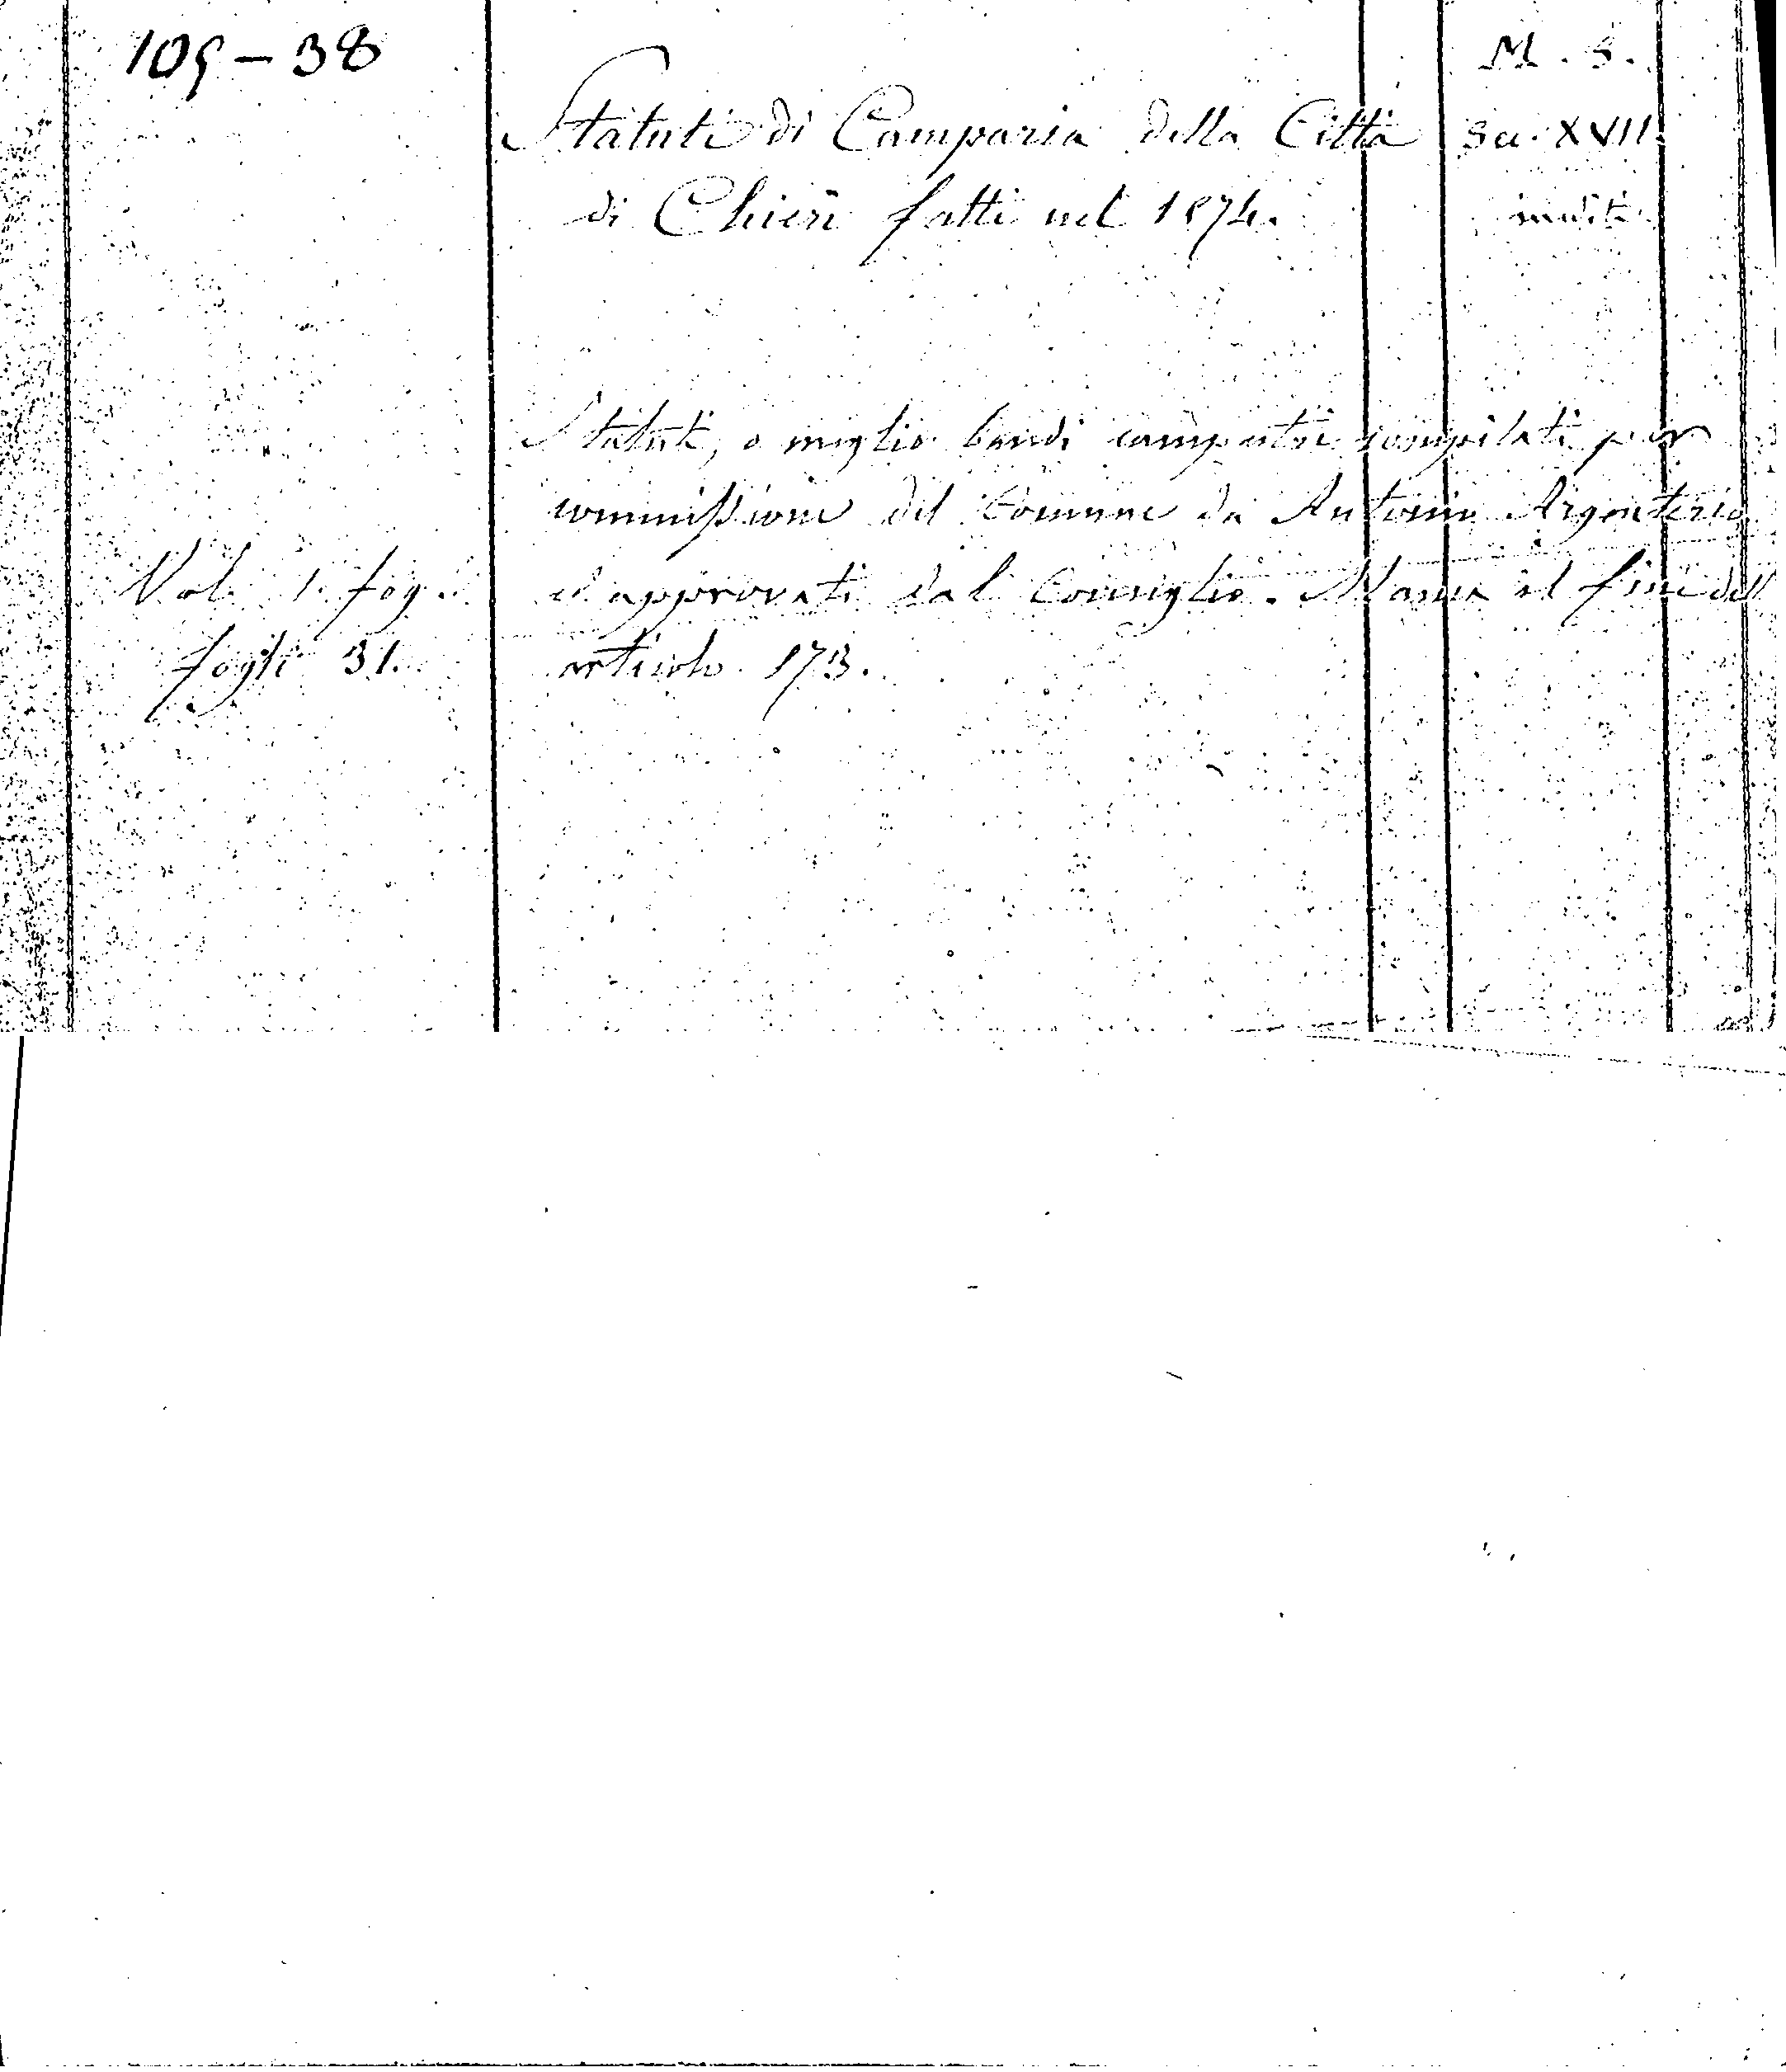 109-38
Statuti di Camparia della Città
di Chieri fatti nel 1574.
M. S.
Sec. XVII.
inediti
Statuti, o meglio bandi campestri compilati per
commissione del Comune da Antonio Argenterio
ed approvati dal Consiglio. Manca il fine dell'
articolo 173.
Vol. 1. fog.
fogli 31.